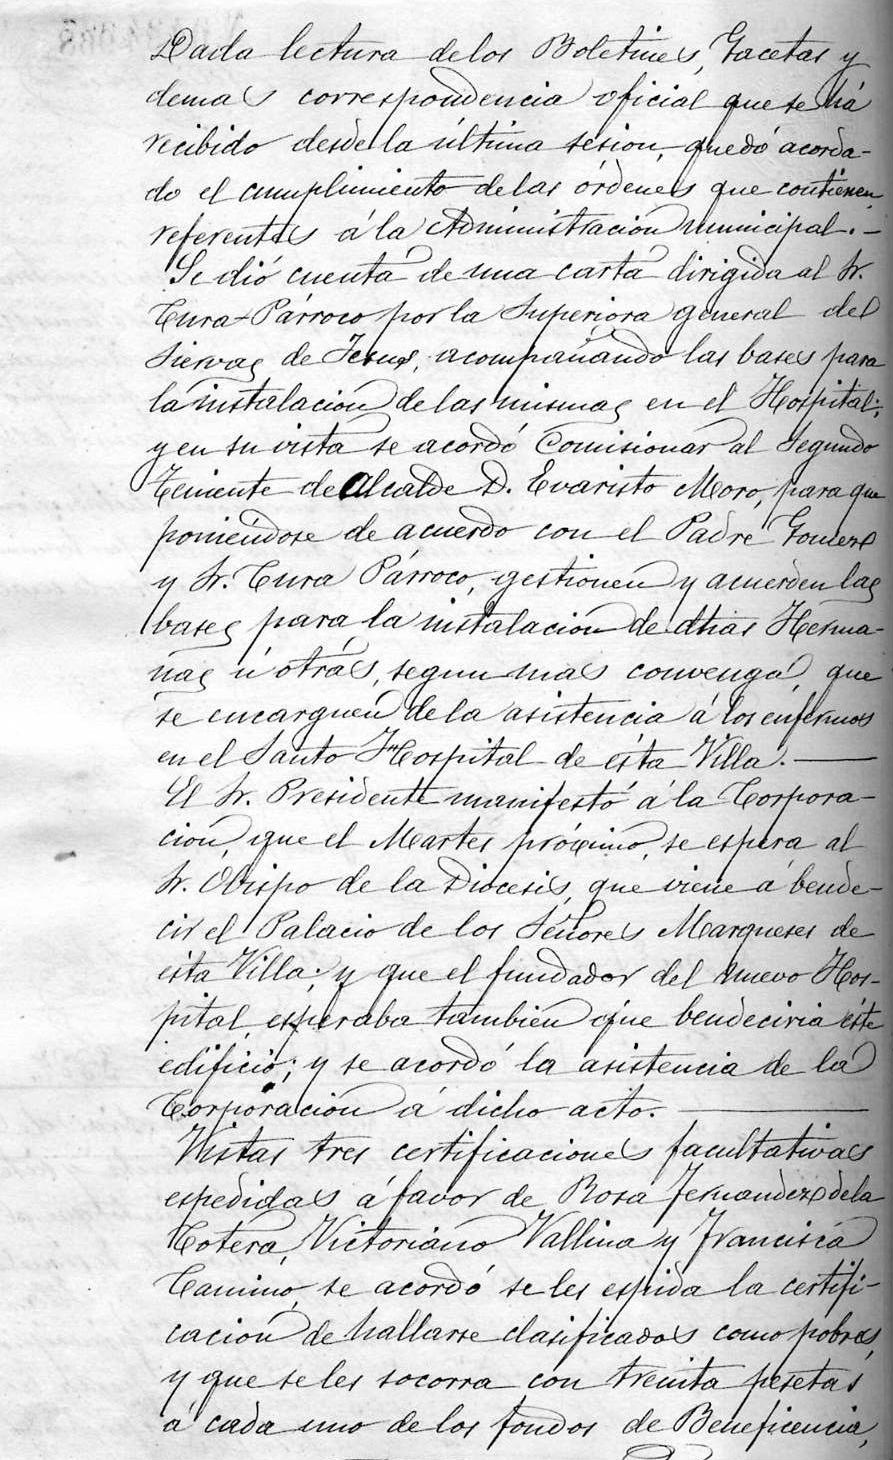 Dada lectura de los Boletines, Gacetas y
demas correspondencia oficial que se há
recibido desde la última sesion, quedó acorda-
do el cumplimiento de las órdenes que contienen
referentes á la Administracion municipal. -
Se dió cuenta de una carta dirigida al Sr.
Cura-Párroco por la Superiora general del
Siervas de Jesus, acompañando las bases para
la instalacion de las mismas en el Hospital;
y en su vista se acordó Comisionar al Segundo
Teniente de Alcalde D. Evaristo Moro, para que
poniéndose de acuerdo con el Padre Gomez
y Sr. Cura Párroco, gestionen y acuerden las
bases para la instalacion de dhas Herma-
nas ú otras, segun mas convenga, que
se encarguen de la asistencia á los enfermos
en el Santo Hospital de ésta Villa. -
El Sr. Presidente manifestó á la Corpora-
cion, que el Martes próximo, se espera al
Sr. Obispo de la Diocesis, que viene á bende-
cir el Palacio de los Señores Marqueses de
ésta Villa; y que el fundador del nuevo Hos-
pital, esperaba también que bendeciria éste
edificio; y se acordó la asistencia de la
Corporacion á dicho acto. -
Vistas tres certificaciones facultativas
espedidas á favor de Rosa Fernandez de la
Cotera, Victoriano Vallina y Francisca
Camino, se acordó se les espida la certifi-
cacion de hallarse clasificados como pobres,
y que se les socorra con treinta pesetas
á cada uno de los fondos de Beneficencia,